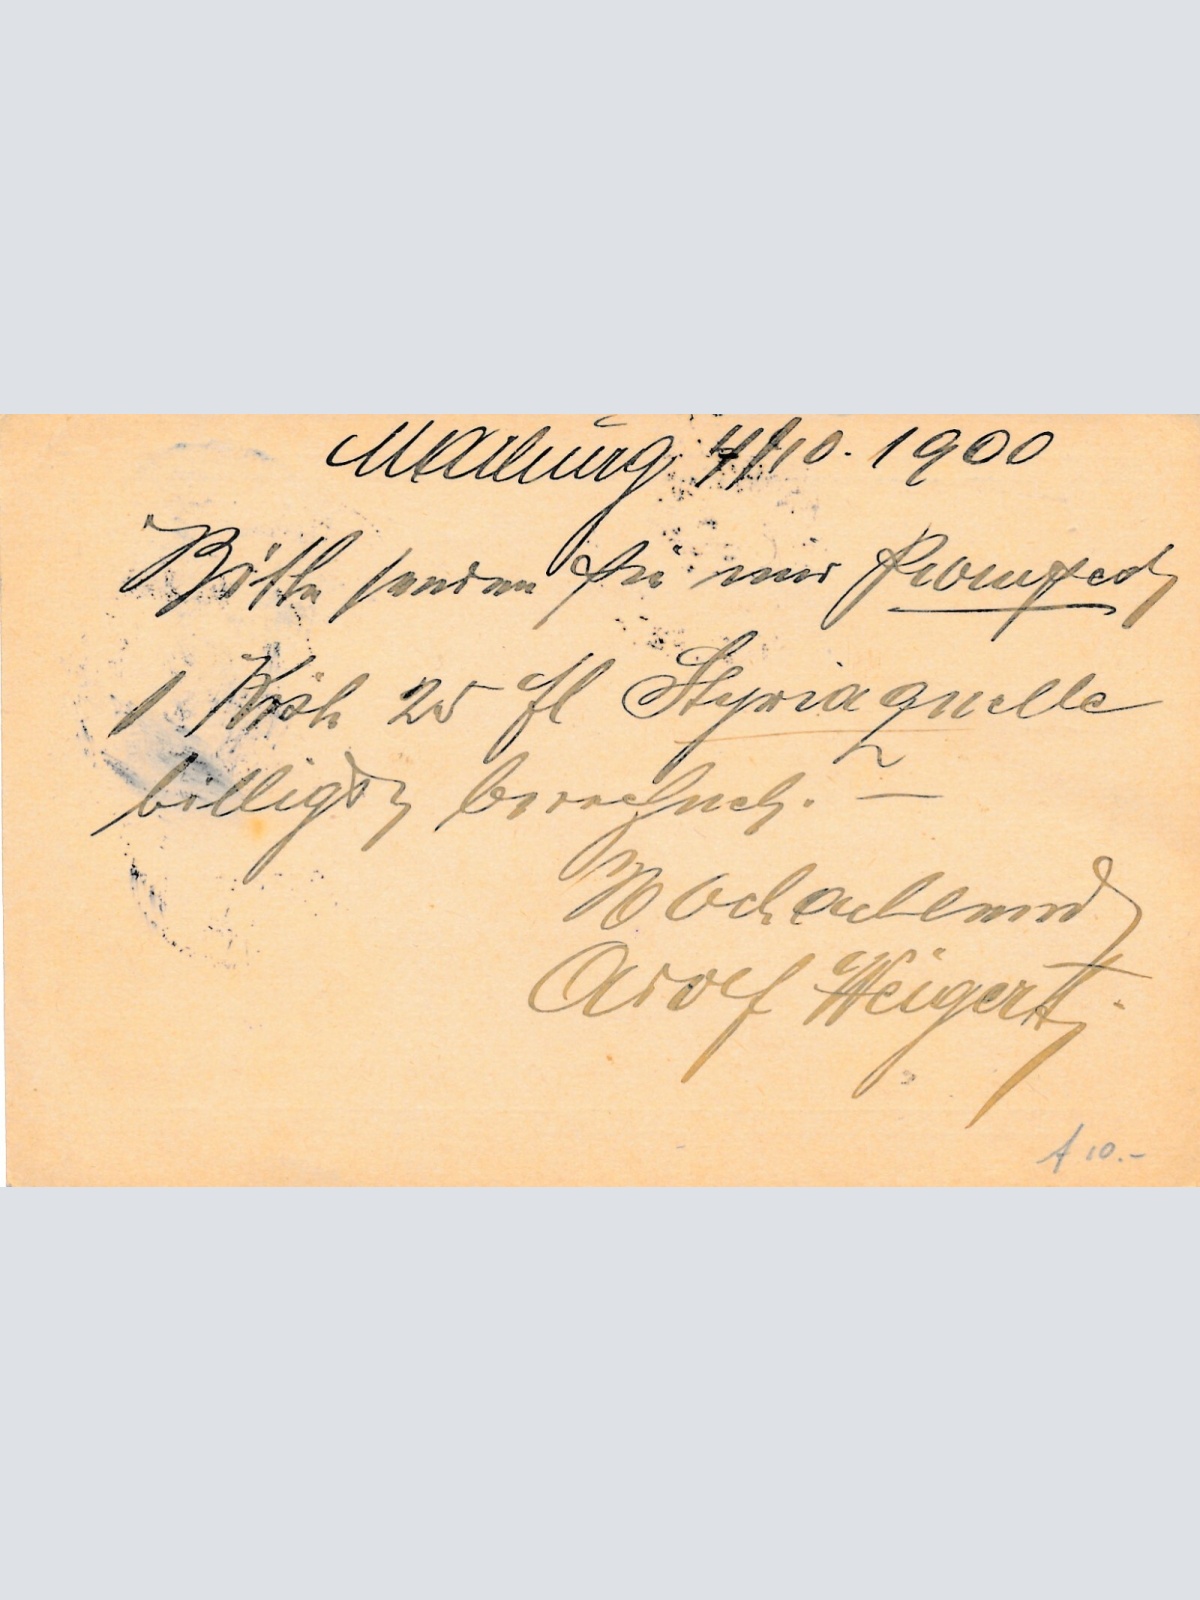 Marburg 4/10. 1900
Bitte senden Sie mir prompest
1 Kiste 25 Fl Styriaquelle
billigst berechnet. —
Hochachtend
Adolf Weigert
A 10.-